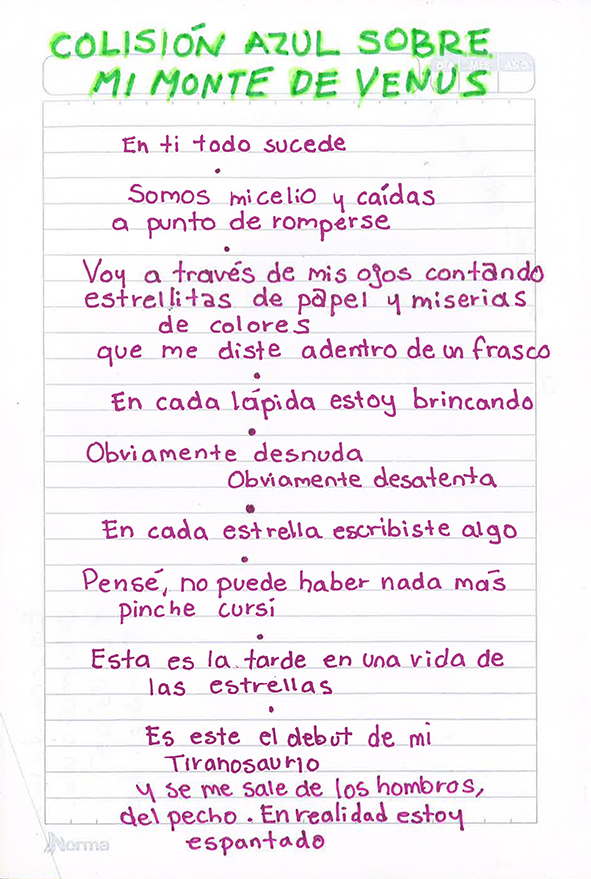 COLISIÓN AZUL SOBRE
MI MONTE DE VENUS
DÍA MES AÑO
En ti todo sucede
.
Somos micelio y caídas
a punto de romperse
.
Voy a través de mis ojos contando
estrellitas de papel y miserias
de colores
que me diste adentro de un frasco
.
En cada lápida estoy brincando
.
Obviamente desnuda
Obviamente desatenta
.
En cada estrella escribiste algo
.
Pensé, no puede haber nada más
pinche cursi
.
Esta es la tarde en una vida de
las estrellas
.
Es este el debut de mi
Tiranosaurio
y se me sale de los hombros,
del pecho. En realidad estoy
espantado
Norma